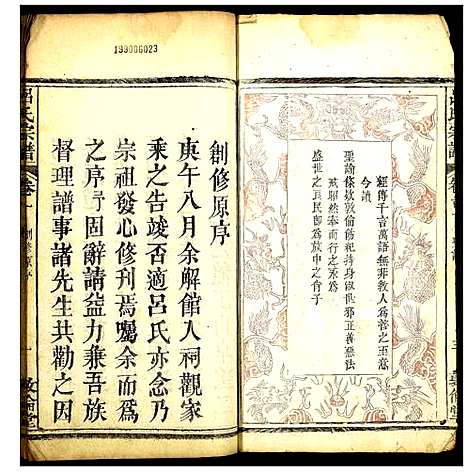 經傳千言萬語無非教人為善之至意
今讀
聖諭條欵敦倫飭紀持身做世善惡法
戒昭然奉而行之未
盛世之良民即為族中之肖子
創修原序
庚午八月余解館入祠觀家
乘之告竣否適呂氏亦念乃
宗祖發心修刊焉囑余而為
之序予固辭請益力兼吾族
督理譜事諸先生共勸之因
呂氏宗譜
卷一
創修原序
一
敦倫堂
199006023